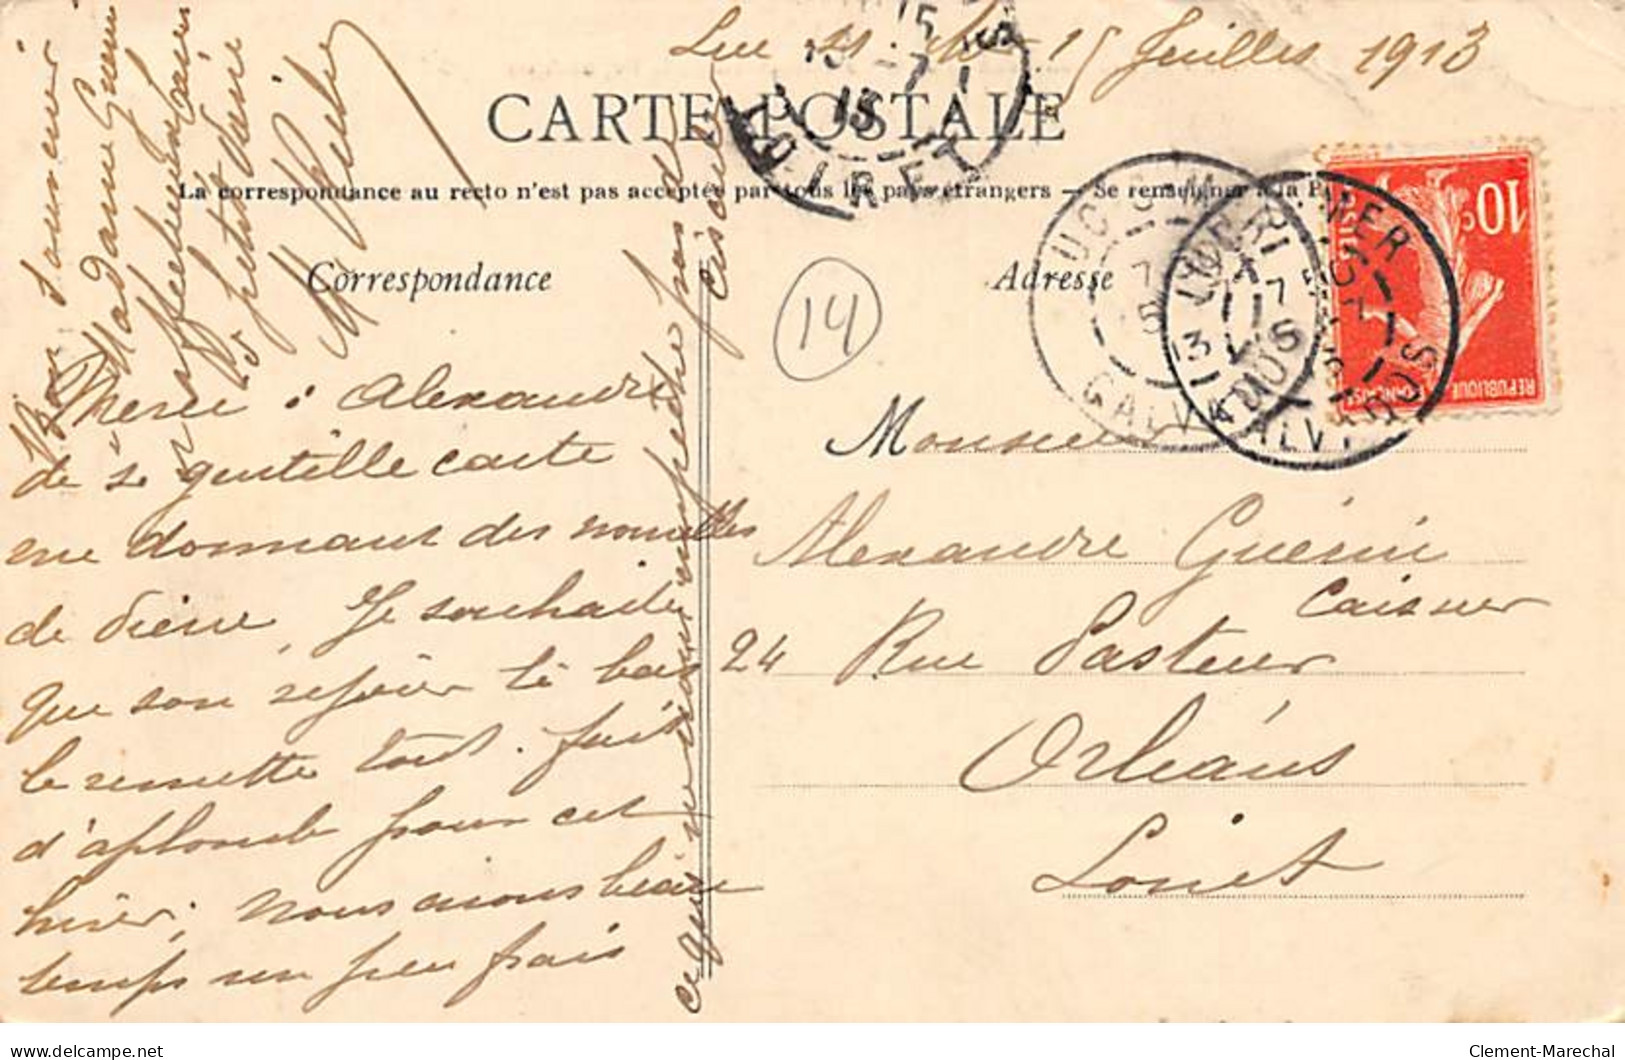 Luc s. Mer 15 Juillet 1913
CARTE POSTALE
La correspondance au recto n'est pas acceptée par tous les pays étrangers — Se renseigner à la P
Correspondance
Adresse
14
10c
REPUBLIQUE FRANÇAISE
LOIRET
CALVADOS
Monsieur
Alexandre Guérin
Caissier
24 Rue Pasteur
Orléans
Loiret
Merci à Alexandre
de sa gentille carte
me donnant des nouvelles
de Pierre, Je souhaite
que son séjour là bas
le remette tout à fait
d'aplomb pour cet
hiver; Nous avons beau
temps un peu frais
ce qui ne nous empêche pas de
Bon souvenir
à Madame Guérin
affectueux baisers
à petit Pierre
Clement-Marechal
delcampe.net